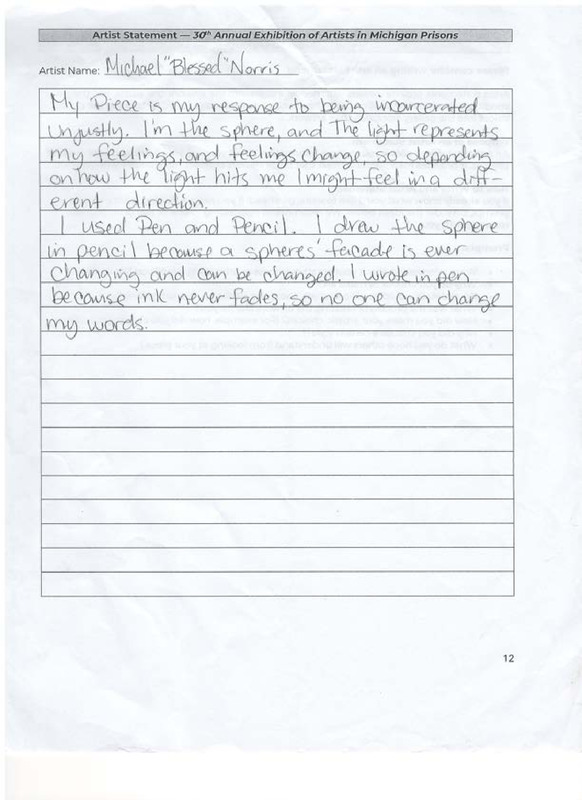 Artist Statement — 30th Annual Exhibition of Artists in Michigan Prisons
Artist Name: Michael "Blessed" Norris
My Piece is my response to being incarcerated
Unjustly. I'm the sphere, and The light represents
my feelings, and feelings change, so depending
on how the light hits me I might feel in a diff-
erent direction.
I used Pen and Pencil. I drew the sphere
in pencil because a spheres' facade is ever
changing and can be changed. I wrote in pen
because ink never fades, so no one can change
my words.
12